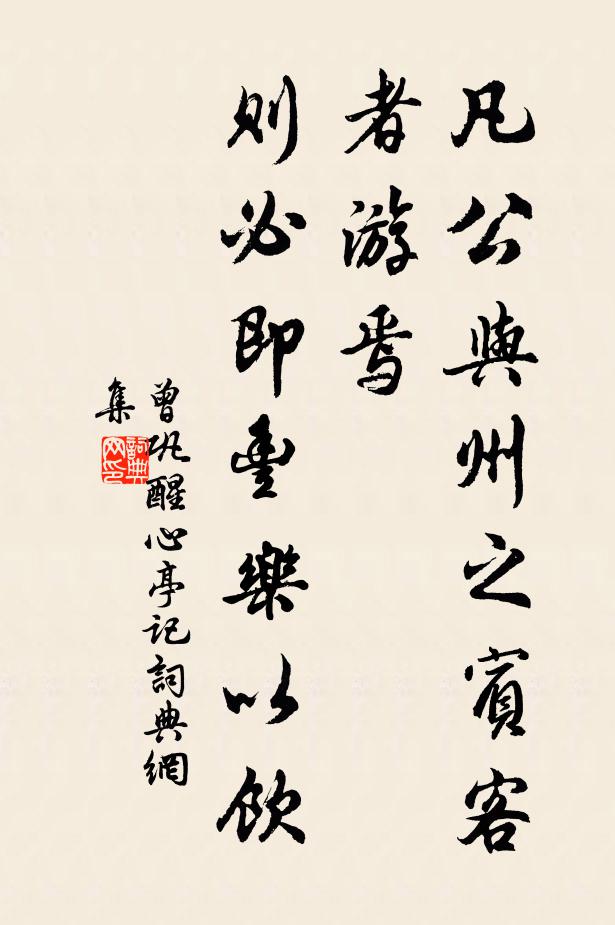 凡公與州之賓客
者游焉
則必即豐樂以飲
曾巩醒心亭记詞典網
集
詞典網印